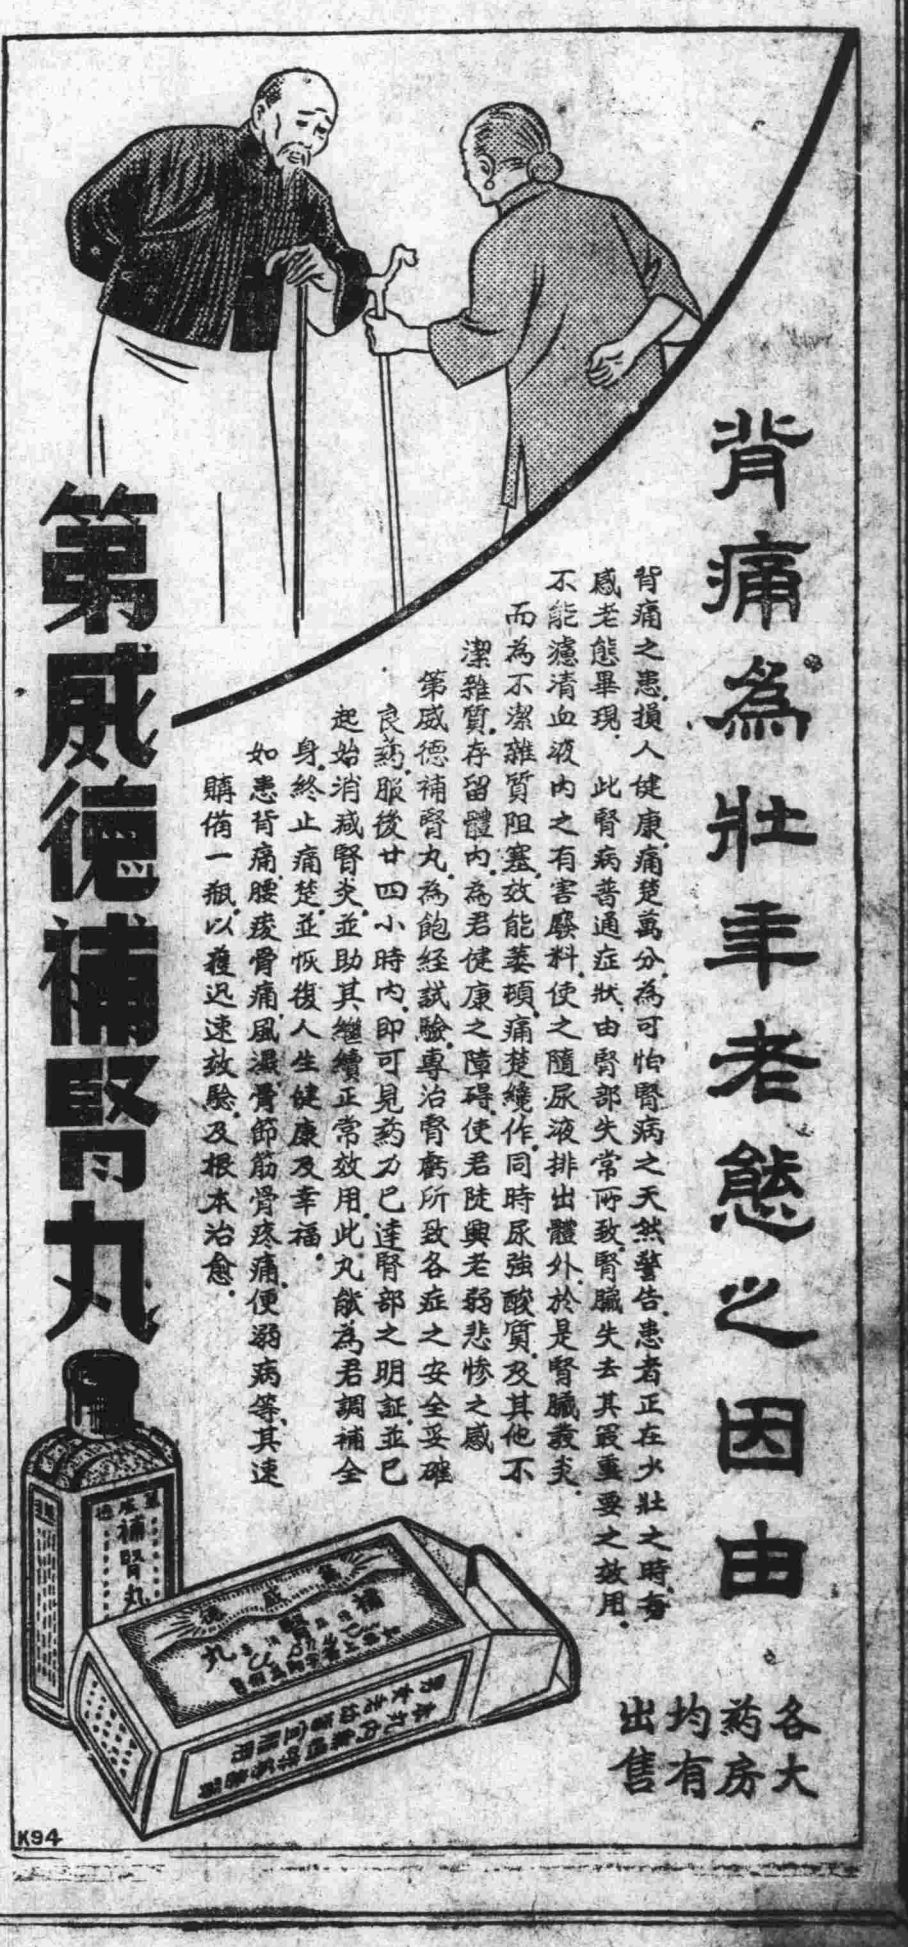 背痛為壯年老態之因由
背痛之患，損人健康，痛楚萬分，為可怕腎病之天然警告，患者正在少壯之時，有
感老態畢現，此腎病普通症狀，由腎部失常所致，腎臟失去其最重要之效用，
不能濾清血液內之有害廢料，使之隨尿液排出體外，於是腎臟發炎，
而為不潔雜質阻塞，效能萎頓，痛楚纔作，同時尿強酸質，及其他不
潔雜質，存留體內，為君健康之障碍，使君陡興老弱悲慘之感
第威德補腎丸，為飽經試驗，專治腎虧所致各症之安全妥確
良葯，服後廿四小時內，即可見葯力已達腎部之明証，並已
起始消减腎炎，並助其繼續正常效用，此丸能為君調補全
身，終止痛楚，並恢復人生健康及幸福。
如患背痛，腰痠骨痛，風濕骨節筋骨疼痛，便溺病等，其速
購備一瓶，以獲迅速效驗，及根本治愈。
第威德補腎丸
各大
葯房
均有
出售
補腎丸
第威德
補腎丸
K94